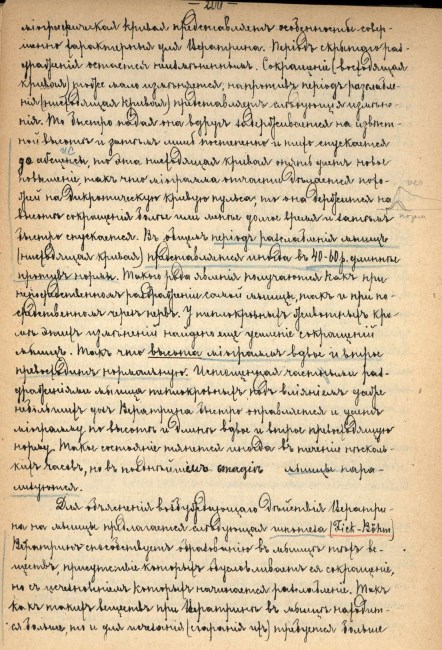 — 200 —
міографическая кривая представляетъ особенности совер-
шенно характерныя для Вератрина. Періодъ скрытаго раз-
драженія остается неизмѣненнымъ. Сокращеніе (восходящая
кривая) также мало измѣняется, напротивъ періодъ разслабле-
нія (нисходящая кривая) представляетъ слѣдующія измѣне-
нія. То быстро падая она вдругъ задерживается на извѣст-
ной высотѣ и затѣмъ лишь постепенно и тихо спускается
до абсциссы, то эта нисходящая кривая опять даетъ новое
повышеніе, такъ что міограмма отчасти дѣлается похо-
жей на дикротическую кривую пульса, то она держится на
высотѣ сокращенія болѣе или менѣе долгое время и затѣмъ
быстро спускается. Въ общемъ періодъ разслабленія мышцъ
(нисходящая кривая) представляется иногда въ 40-60 р. длиннѣе
противъ нормы. Такого рода явленія получаются какъ при
непосредственномъ раздраженіи самой мышцы, такъ и при по-
средственномъ черезъ нервъ. У теплокровныхъ животныхъ кро-
мѣ этихъ измѣненій найдено еще усиленіе сокращеній
мышцъ. Такъ что высота міограммъ вдвое и втрое
превосходитъ нормальную. Истощенная частыми раз-
драженіями мышца теплокровныхъ подъ вліяніемъ даже
небольшихъ дозъ Вератрина быстро оправляется и даетъ
міограмму по высотѣ и длинѣ вдвое и втрое превосходящую
норму. Такое состояніе тянется иногда въ теченіе нѣсколь-
кихъ часовъ, но въ позднѣйшемъ стадіѣ мышцы пара-
лизуются.
Для объясненія возбуждающаго дѣйствія Вератри-
на на мышцы предлагается слѣдующая гипотеза (Fick-Böhm)
Вератринъ способствуетъ образованію въ мышцѣ тѣхъ ве-
ществъ, присутствіе которыхъ обусловливаетъ ея сокращеніе,
но съ исчезновеніемъ которыхъ начинается разслабленіе. Такъ
какъ такихъ веществъ при Вератринѣ въ мышцѣ находит-
ся больше, то и для исчезанія (сгоранія ихъ) требуется больше